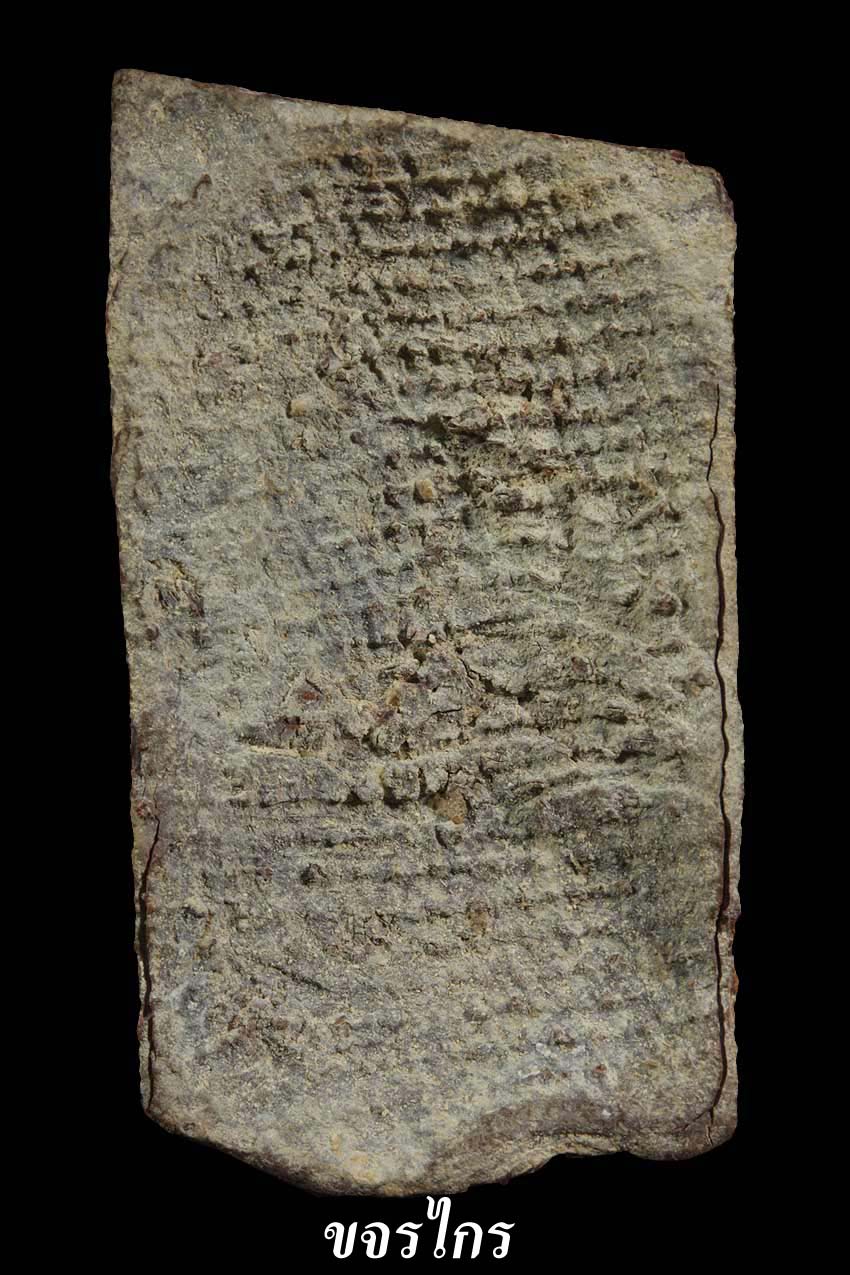 ขจรไกร